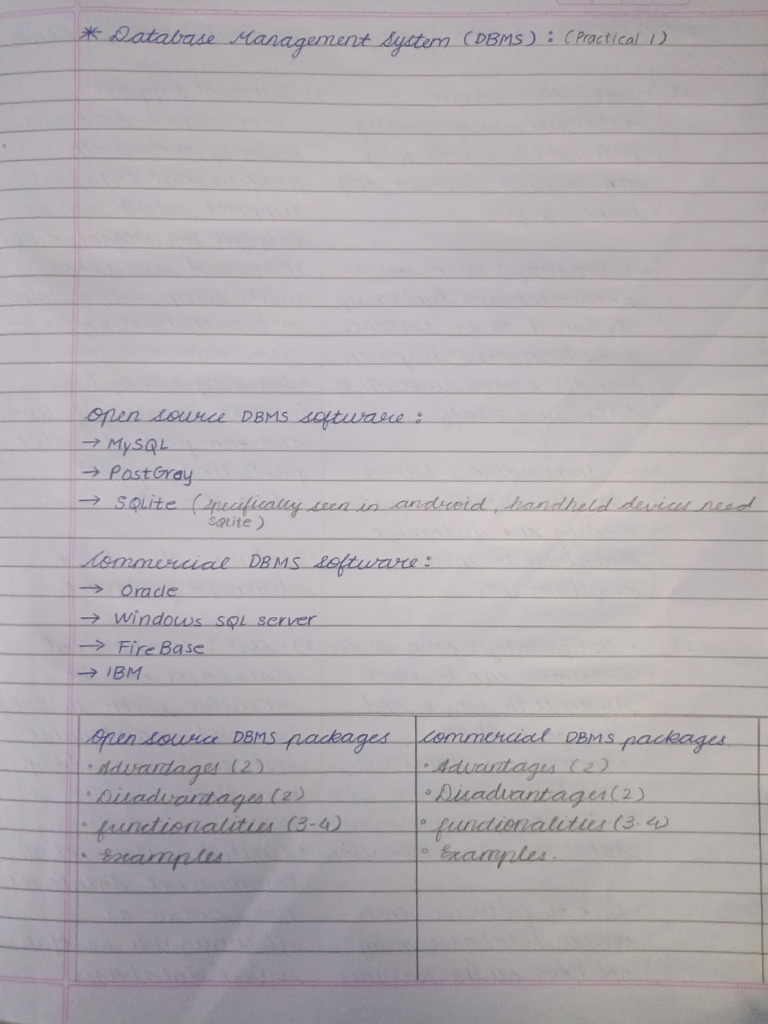 * Database Management System (DBMS) : (Practical 1)
open source DBMS software :
→ MySQL
→ PostGray
→ SQLite (specifically seen in android, handheld devices need
SQlite)
Commercial DBMS software :
→ Oracle
→ Windows SQL server
→ FireBase
→ IBM
open source DBMS packages
• Advantages (2)
• Disadvantages (2)
• functionalities (3-4)
• Examples
commercial DBMS packages
• Advantages (2)
• Disadvantages (2)
• functionalities (3-4)
• Examples.